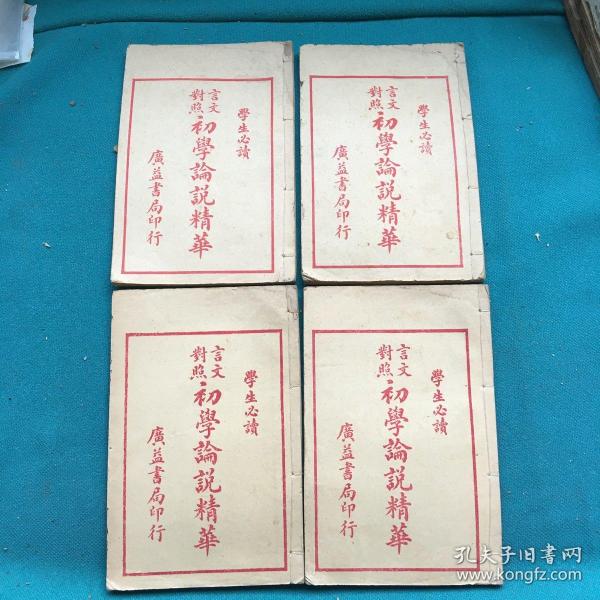 學生必讀
言文
對照
初學論説精華
廣益書局印行
學生必讀
言文
對照
初學論説精華
廣益書局印行
學生必讀
言文
對照
初學論説精華
廣益書局印行
學生必讀
言文
對照
初學論説精華
廣益書局印行
孔夫子旧书网
www.kongfz.com